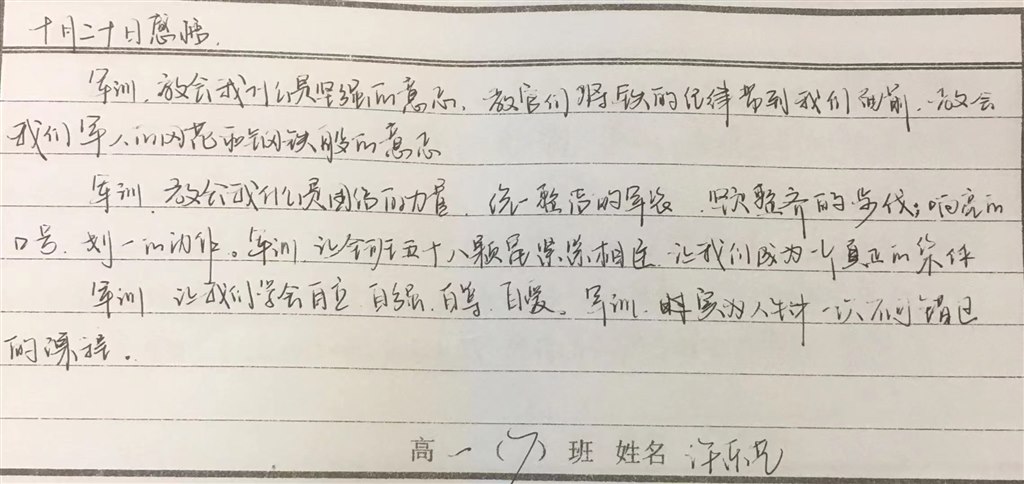 十月二十日感悟.
军训,教会我什么是坚强的意志,教官们将铁的纪律带到我们面前,教会
我们军人的风范和钢铁般的意志
军训,教会我什么是团结的力量,统一整洁的军装,整齐的步伐,响亮的
口号,划一的动作。军训让全班五十八颗星紧紧相连,让我们成为一个真正的集体
军训 让我们学会自立,自强,自尊,自爱。军训,实为人生中一次不可错过
的课程。
高一(7)班 姓名 许乐